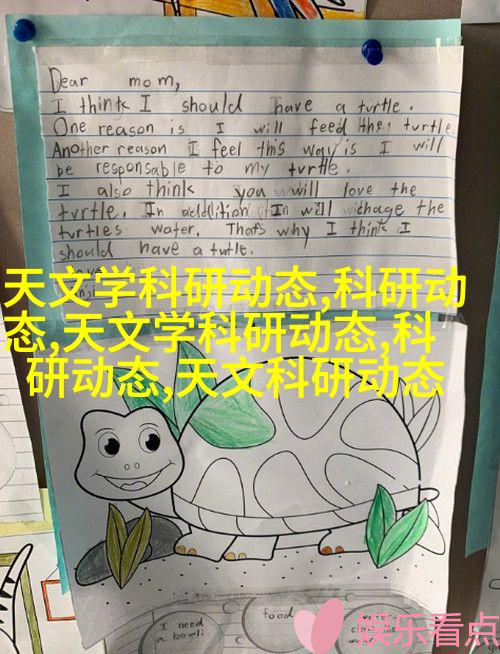 Dear mom,
I think I should have a turtle.
One reason is I will feed the turtle.
Another reason I feel this way is I will
be responsable to my turtle.
I also think you will love the
turtle. In addition I will chage the
turtles water. That's why I think I
should have a turtle.
天文学科研动态,科研动
态,天文学科研动态,科
研动态,天文科研动态
I need
a bowl
food
娱乐看点